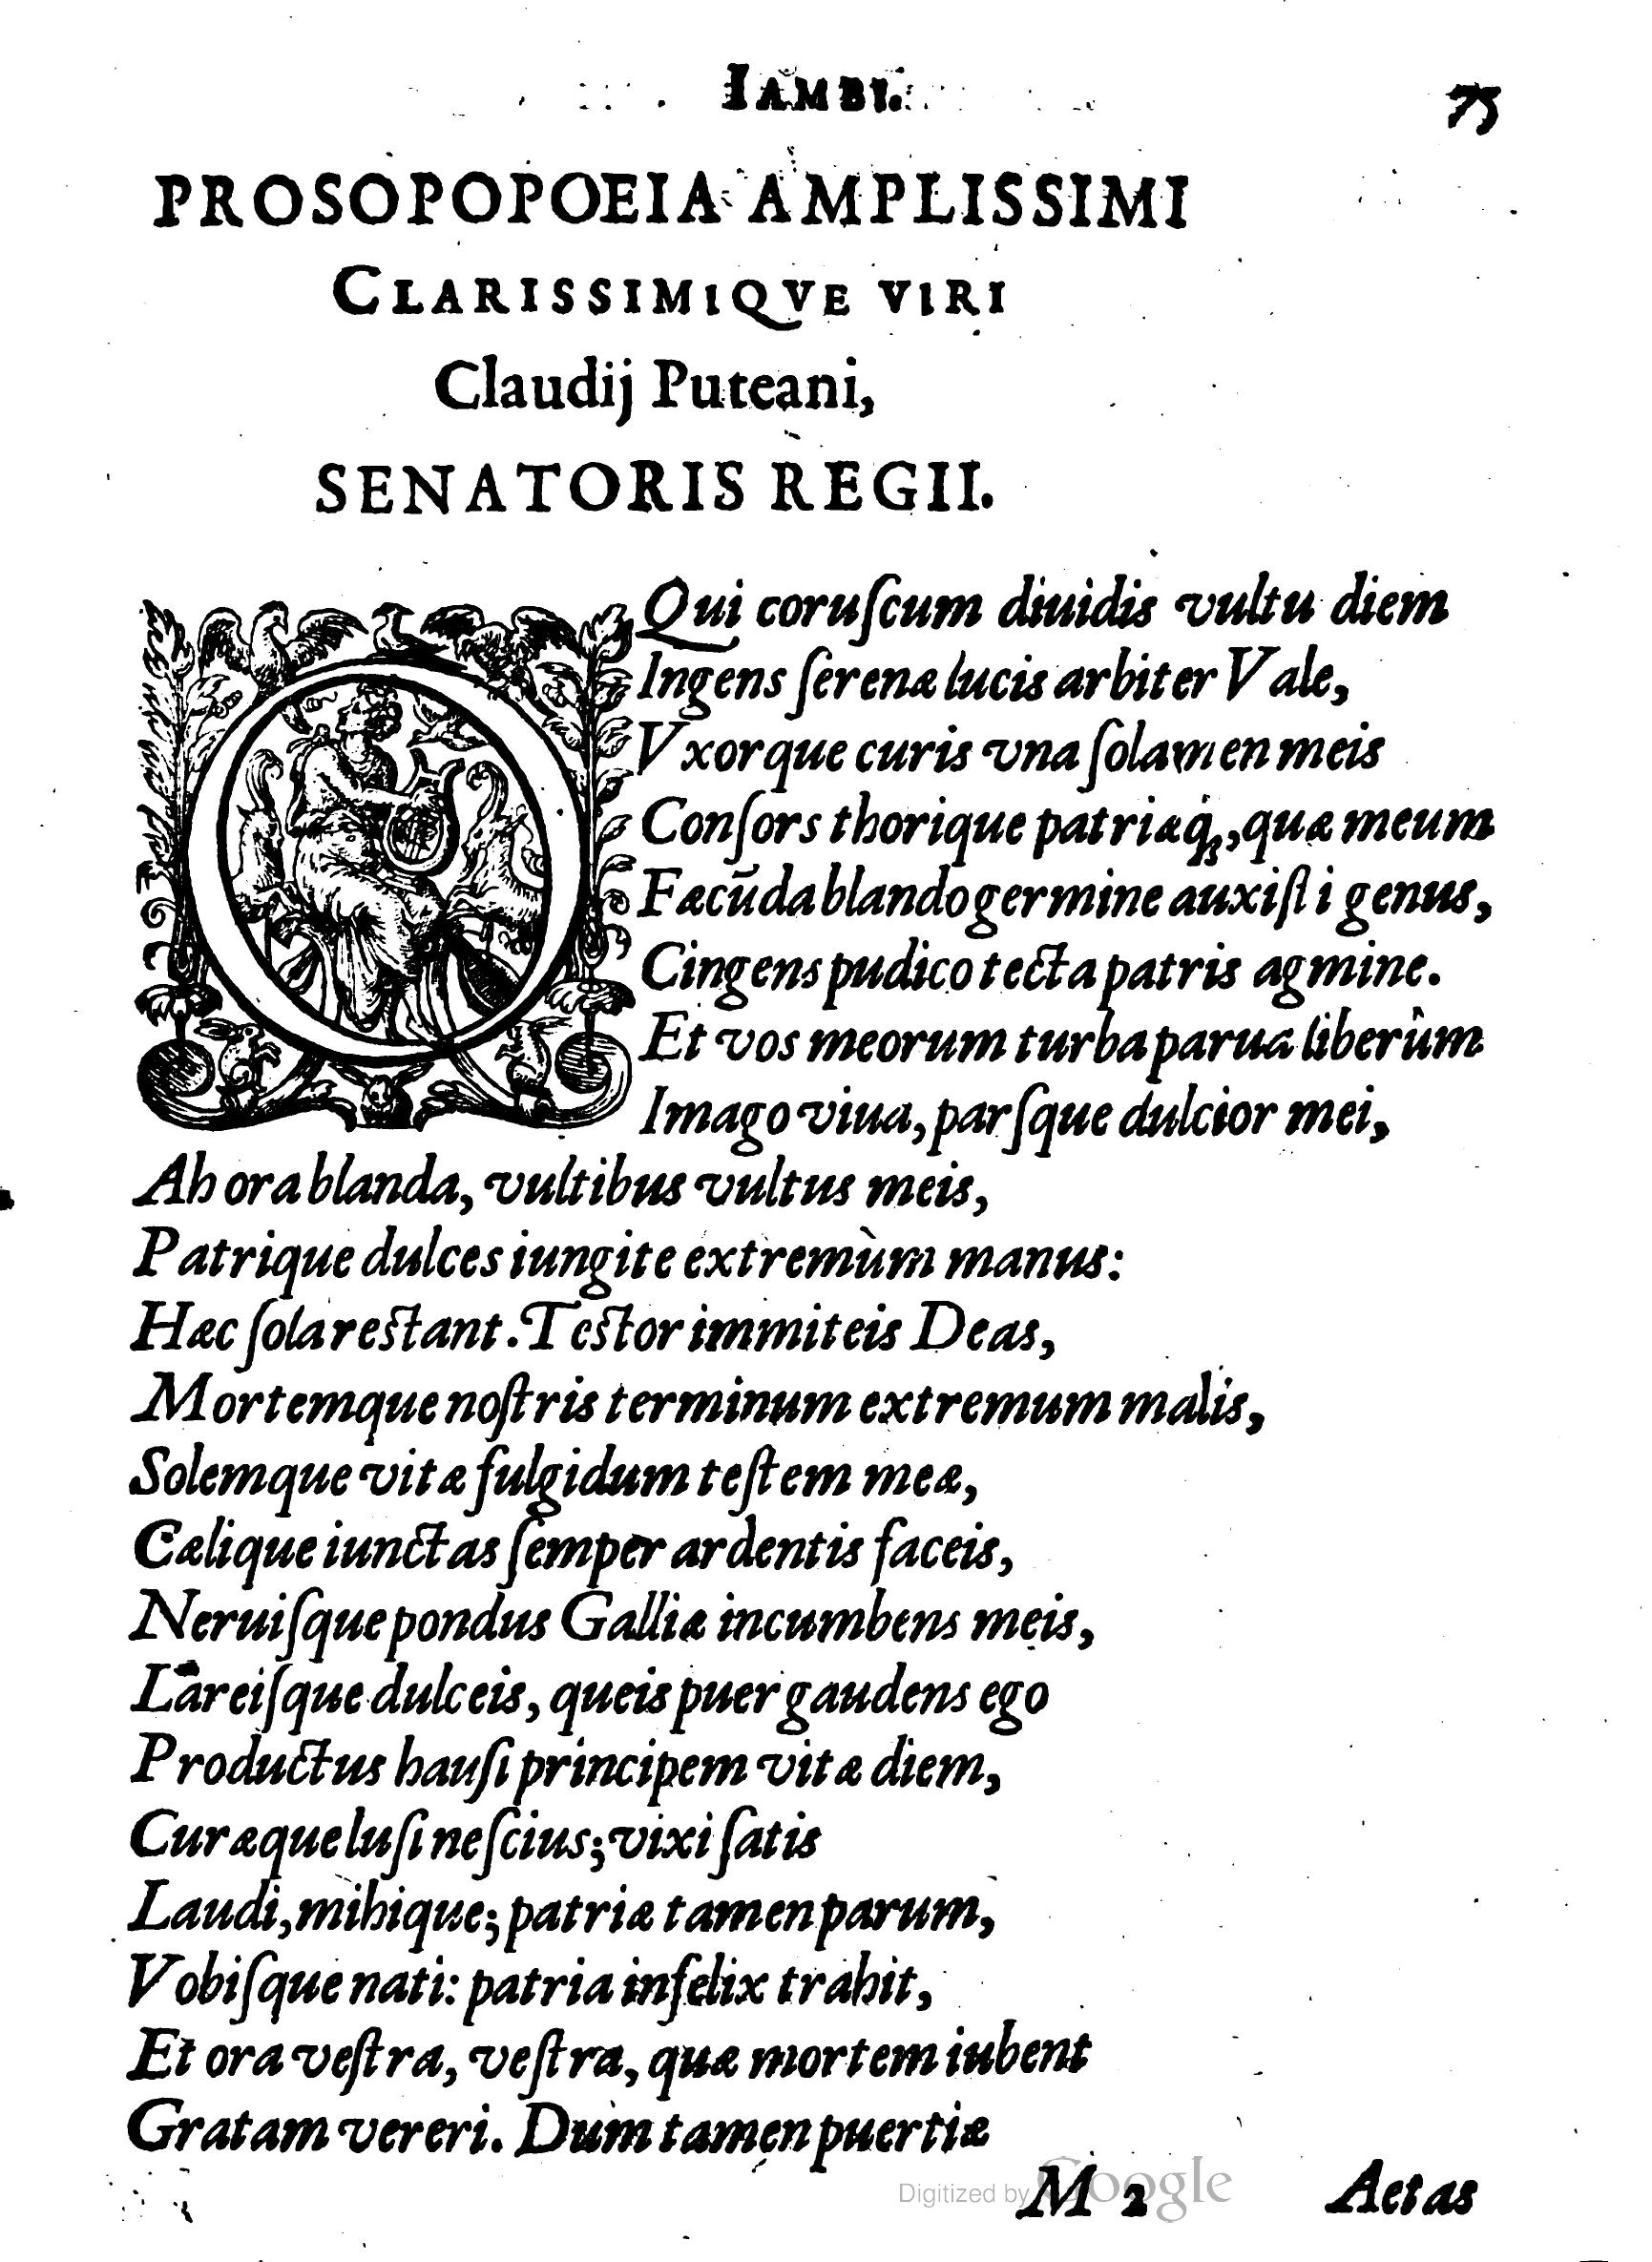 IAMBI. 75
PROSOPOPOEIA AMPLISSIMI
CLARISSIMIQVE VIRI
Claudij Puteani,
SENATORIS REGII.
O Qui coruſcum diuidis vultu diem
Ingens ſerenæ lucis arbiter Vale,
Vxorque curis vna ſolamen meis
Conſors thorique patriæq́;, quæ meum
Fæcūda blando germine auxiſti genus,
Cingens pudico tecta patris agmine.
Et vos meorum turba parua liberûm
Imago viua, parſque dulcior mei,
Ah ora blanda, vultibus vultus meis,
Patrique dulces iungite extremùm manus:
Hæc ſola restant. Testor immiteis Deas,
Mortemque noſtris terminum extremum malis,
Solemque vitæ fulgidum teſtem meæ,
Cælique iunctas ſemper ardentis faceis,
Neruiſque pondus Galliæ incumbens meis,
Lareiſque dulceis, queis puer gaudens ego
Productus hauſi principem vitæ diem,
Curæque luſi neſcius; vixi ſatis
Laudi, mihique; patriæ tamen parum,
Vobiſque nati: patria infelix trahit,
Et ora veſtra, veſtra, quæ mortem iubent
Gratam vereri. Dum tamen puertiæ
M 2 Aetas
Digitized by Google